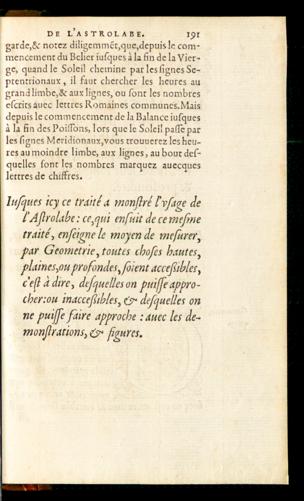 DE L'ASTROLABE. 191
garde,& notez diligemmēt,que,depuis le com-
mencement du Belier iusques à la fin de la Vier-
ge, quand le Soleil chemine par les signes Se-
ptentrionaux, il faut chercher les heures au
grand limbe, & aux lignes, ou sont les nombres
escrits auec lettres Romaines communes. Mais
depuis le commencement de la Balance iusques
à la fin des Poissons, lors que le Soleil passe par
les signes Meridionaux, vous trouuerez les heu-
res au moindre limbe, aux lignes, au bout des-
quelles sont les nombres marquez auecques
lettres de chiffres.
Iusques icy ce traité a monstré l'vsage de
l'Astrolabe: ce,qui ensuit de ce mesme
traité, enseigne le moyen de mesurer,
par Geometrie, toutes choses hautes,
plaines,ou profondes, soient accessibles,
c'est à dire, desquelles on puisse appro-
cher:ou inaccessibles, & desquelles on
ne puisse faire approche : auec les de-
monstrations, & figures.